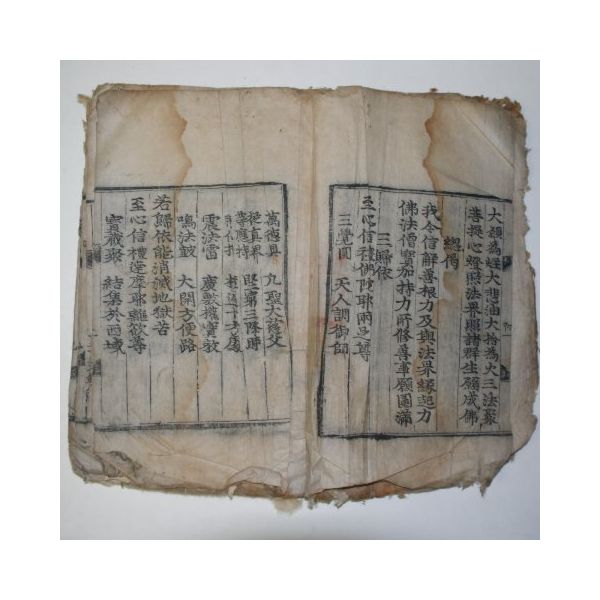 大願為炷大悲油大捨為火三法聚
菩提心燈照法界照諸群生願成佛
緫偈
我今信解善根力及與法界緣起力
佛法僧寶加持力所修善事願圓滿
三歸依
至心信禮佛陁耶兩足尊
三覺圓 天人調御師
萬德具 凡聖大慈父
從真界 等應持 竪第三際時
震法雷 廣敷權實教
鳴法鼓 大開方便路
若歸依能消滅地獄苦
至心信禮達摩耶離欲尊
寶藏聚 結集於西域